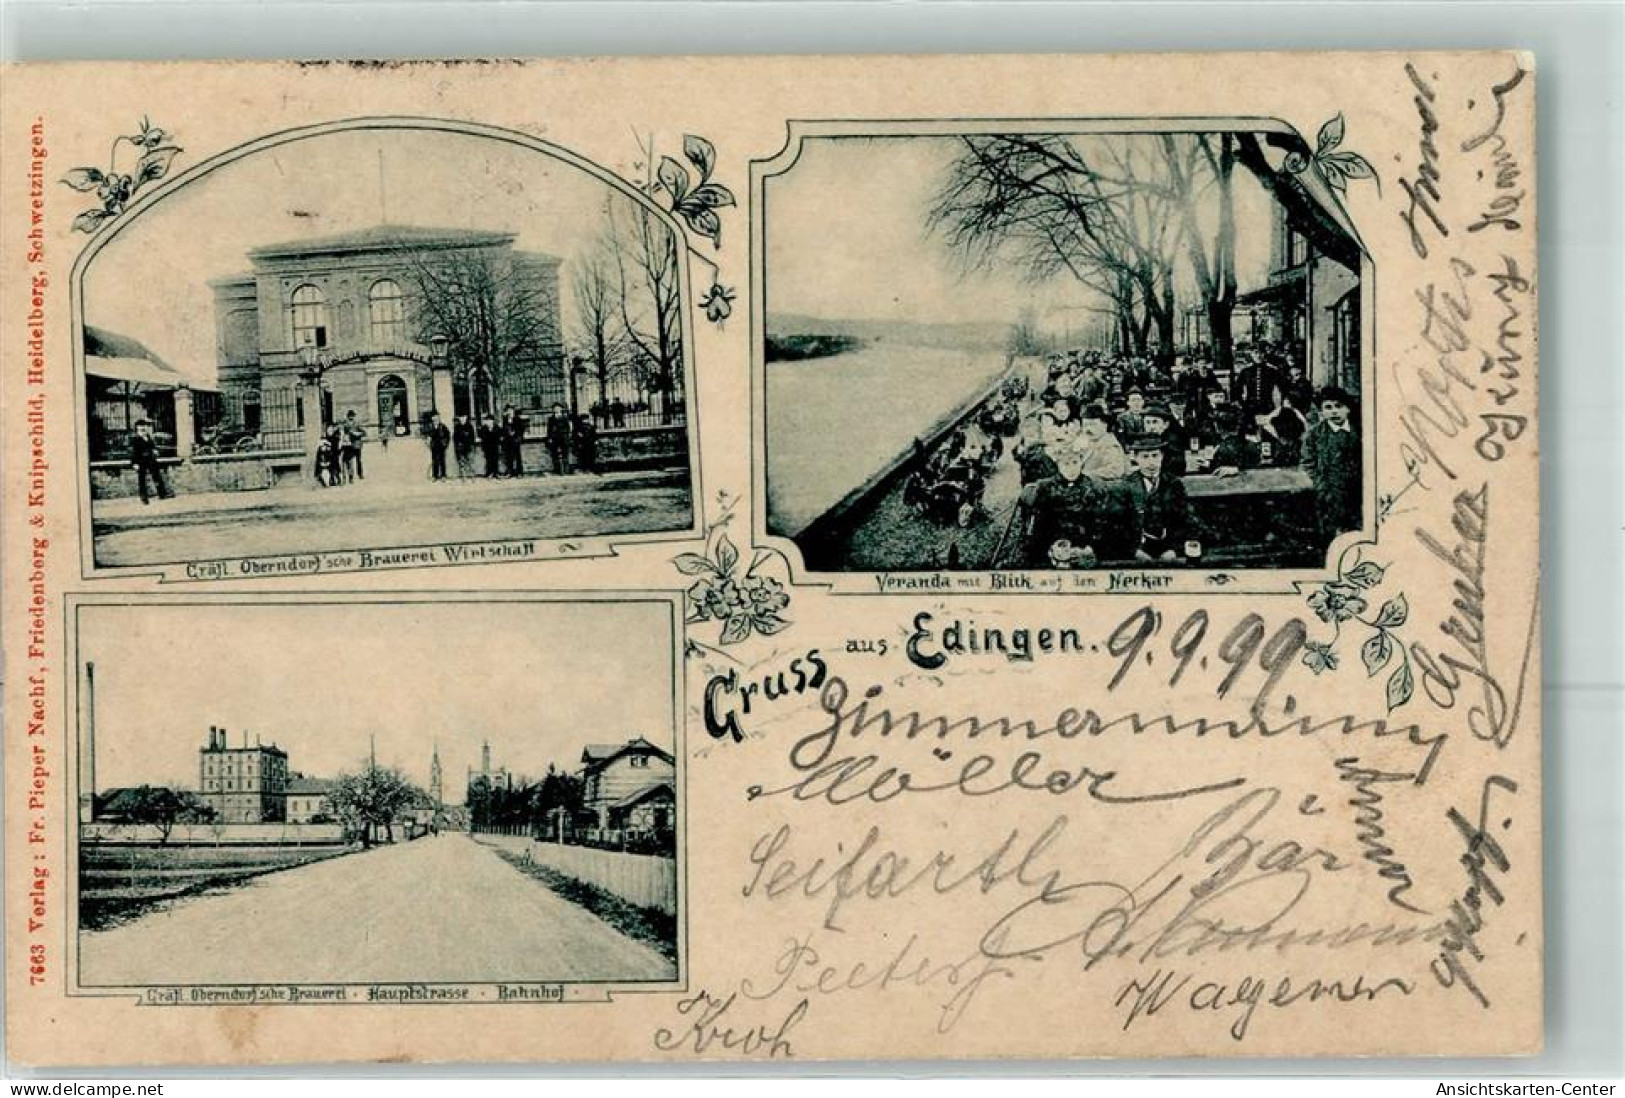 7663 Verlag: Fr. Pieper Nachf, Friedenberg & Knipschild, Heidelberg, Schwetzingen.
Gräfl. Oberndorf'sche Brauerei Wirtschaft
Veranda mit Blick auf den Neckar
Gruss aus Edingen.
9.9.99
Zimmermann
Möller
Bär
Seifarth
Peeters
Wagener
Kroh
Gräfl. Oberndorf'sche Brauerei · Hauptstrasse · Bahnhof ·
Gruber
delcampe.net
Ansichtskarten-Center